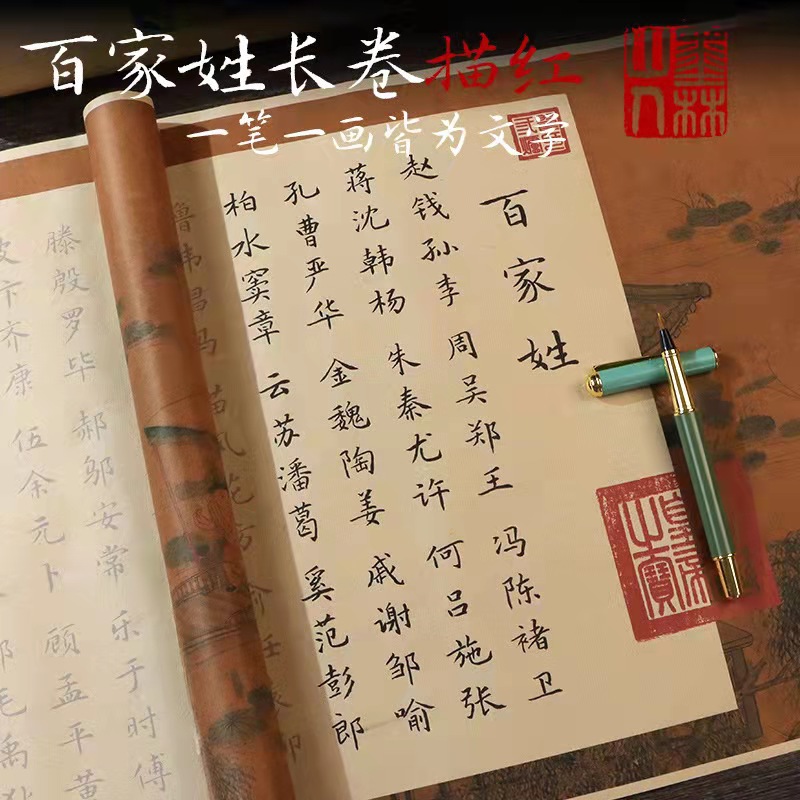 百家姓长卷描红
一笔一画皆为文学
百家姓
赵钱孙李 周吴郑王 冯陈褚卫
蒋沈韩杨 朱秦尤许 何吕施张
孔曹严华 金魏陶姜 戚谢邹喻
柏水窦章 云苏潘葛 奚范彭郎
鲁韦昌马 苗凤花方 俞任袁柳
滕殷罗毕 郝邬安常 乐于时傅
皮卞齐康 伍余元卜 顾孟平黄
毛禹狄
皇帝之寶